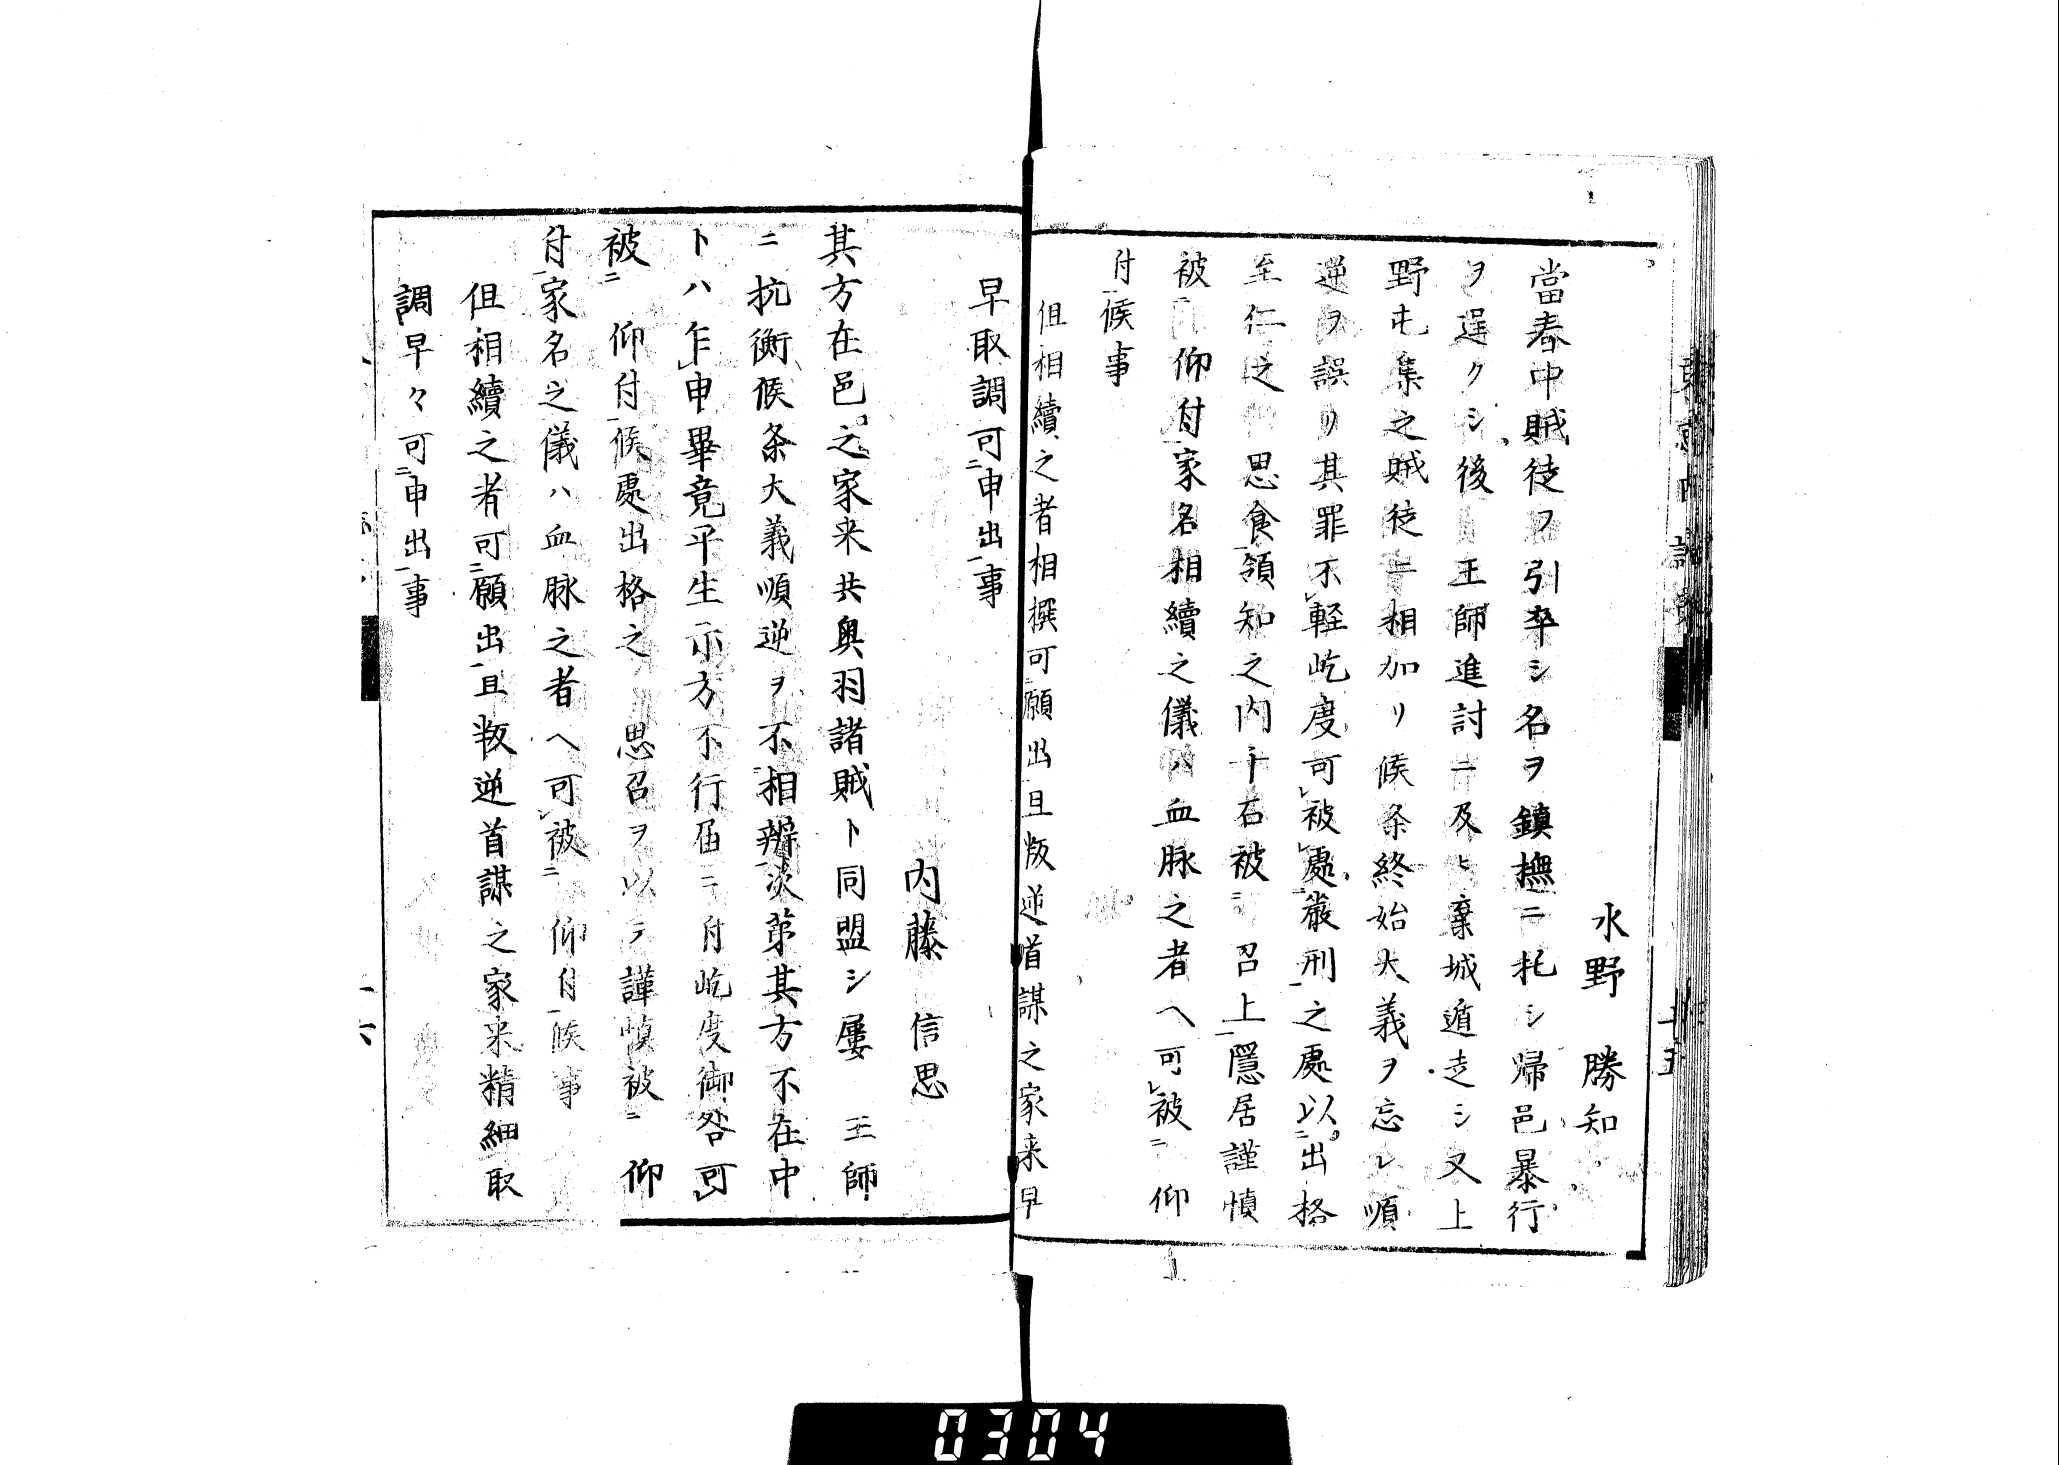 水野勝知
當春中賊徒ヲ引卒シ名ヲ鎮撫ニ托シ歸邑暴行
ヲ逞クシ後王師進討ニ及ヒ棄城遁走シ又上
野屯集之賊徒ニ相加リ候条終始大義ヲ忘レ順
逆ヲ誤リ其罪不軽屹度可被處嚴刑之處以出格
至仁之思食領知之内千石被召上隱居謹愼
被仰付家名相續之儀ハ血脉之者ヘ可被仰
付候事
但相續之者相撰可願出且叛逆首謀之家来早
早取調可申出事
内藤信思
其方在邑之家来共奥羽諸賊ト同盟シ屡王師
ニ抗衡候条大義順逆ヲ不相辨次第其方不在中
トハ乍申畢竟平生示方不行届ニ付屹度御咎可
被仰付候處出格之思召ヲ以テ謹愼被仰
付家名之儀ハ血脉之者ヘ可被仰付候事
但相續之者可願出且叛逆首謀之家来精細取
調早々可申出事
0304